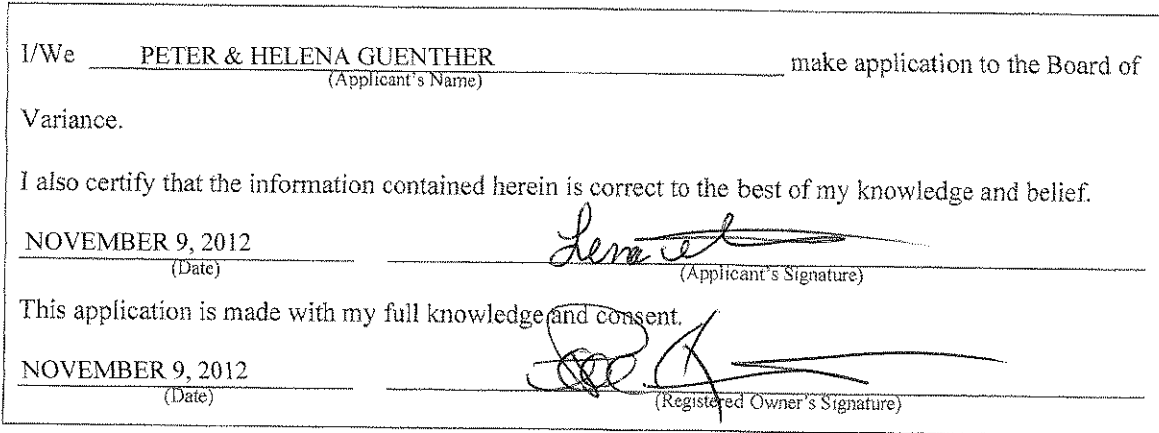 I/We PETER & HELENA GUENTHER make application to the Board of
(Applicant's Name)
Variance.
I also certify that the information contained herein is correct to the best of my knowledge and belief.
NOVEMBER 9, 2012
(Date) (Applicant's Signature)
This application is made with my full knowledge and consent.
NOVEMBER 9, 2012
(Date) (Registered Owner's Signature)